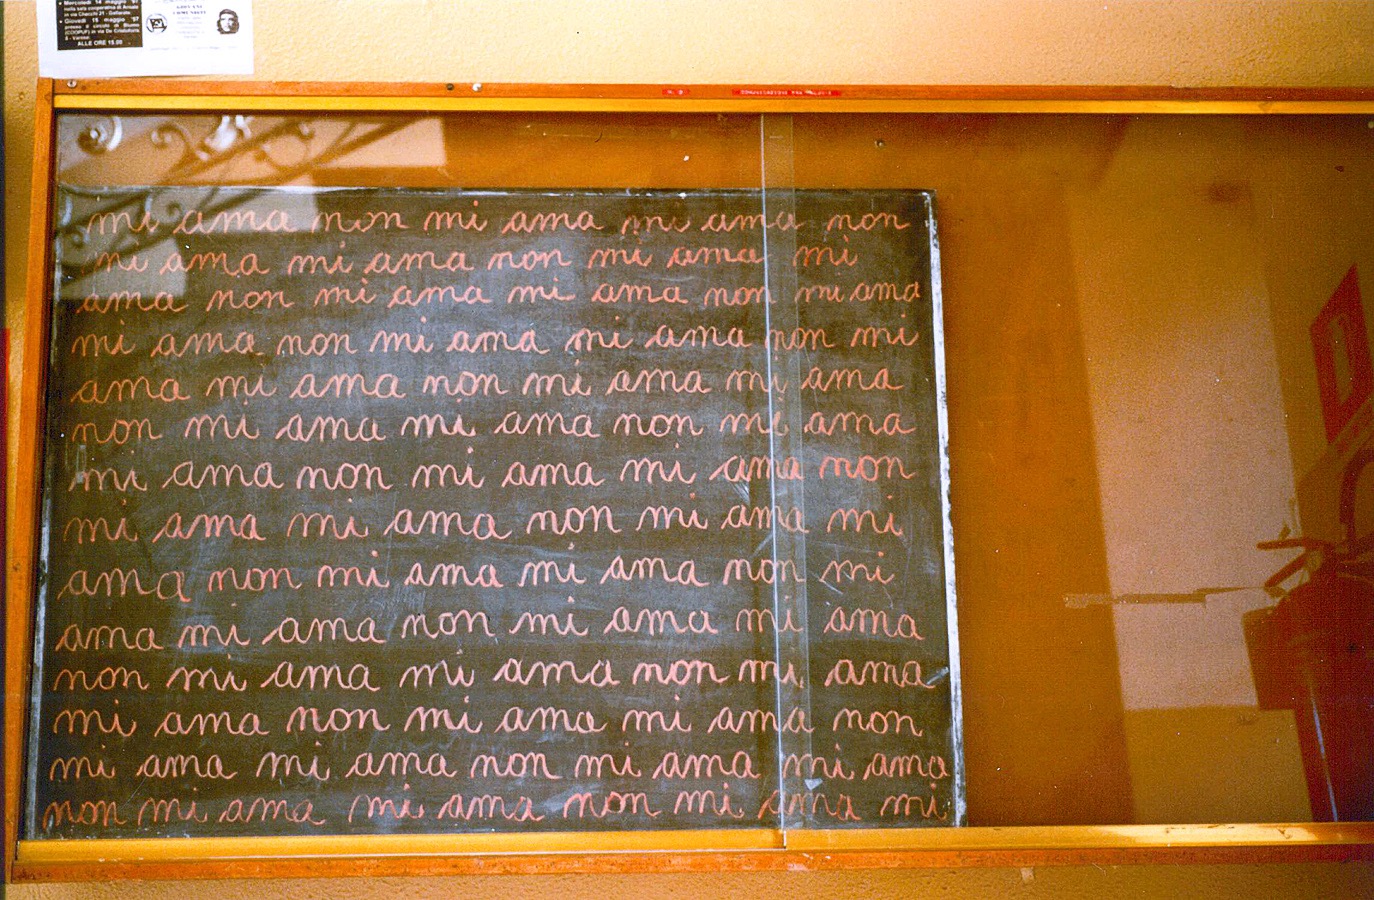 Mercoledì 14 maggio '97
nella sala cooperativa di Arnate
in via Checchi 21 - Gallarate.
Giovedì 15 maggio '97
presso il circolo di Biumo
(COOPUF) in via De Cristoforis
5 - Varese
ALLE ORE 15.00
GIOVANI
COMUNISTI
mi ama non mi ama mi ama non
mi ama mi ama non mi ama mi
ama non mi ama mi ama non mi ama
mi ama non mi ama mi ama non mi
ama mi ama non mi ama mi ama
non mi ama mi ama non mi ama
mi ama non mi ama mi ama non
mi ama mi ama non mi ama mi
ama non mi ama mi ama non mi
ama mi ama non mi ama mi ama
non mi ama mi ama non mi ama
mi ama non mi ama mi ama non
mi ama mi ama non mi ama mi ama
non mi ama mi ama non mi ama mi